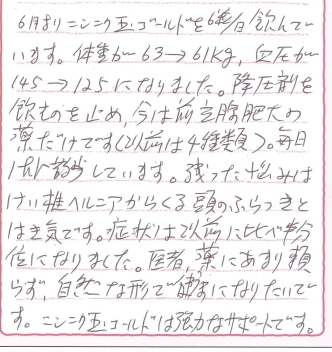 6月より ニンニク玉ゴールドを6粒/日 飲んで
います。体重が63→61kg, 血圧が
145→125になりました。降圧剤を
飲むのを止め, 今は前立腺肥大の
薬だけです(以前は4種類)。毎日
1時間散歩しています。残った悩みは
けい椎ヘルニアからくる頭のふらつきと
は字気です。症状は以前に比べ半分
位になりました。医者, 薬にあまり頼
らず, 自然な形で健康になりたいで
す。ニンニク玉ゴールドは強力なサポートです。